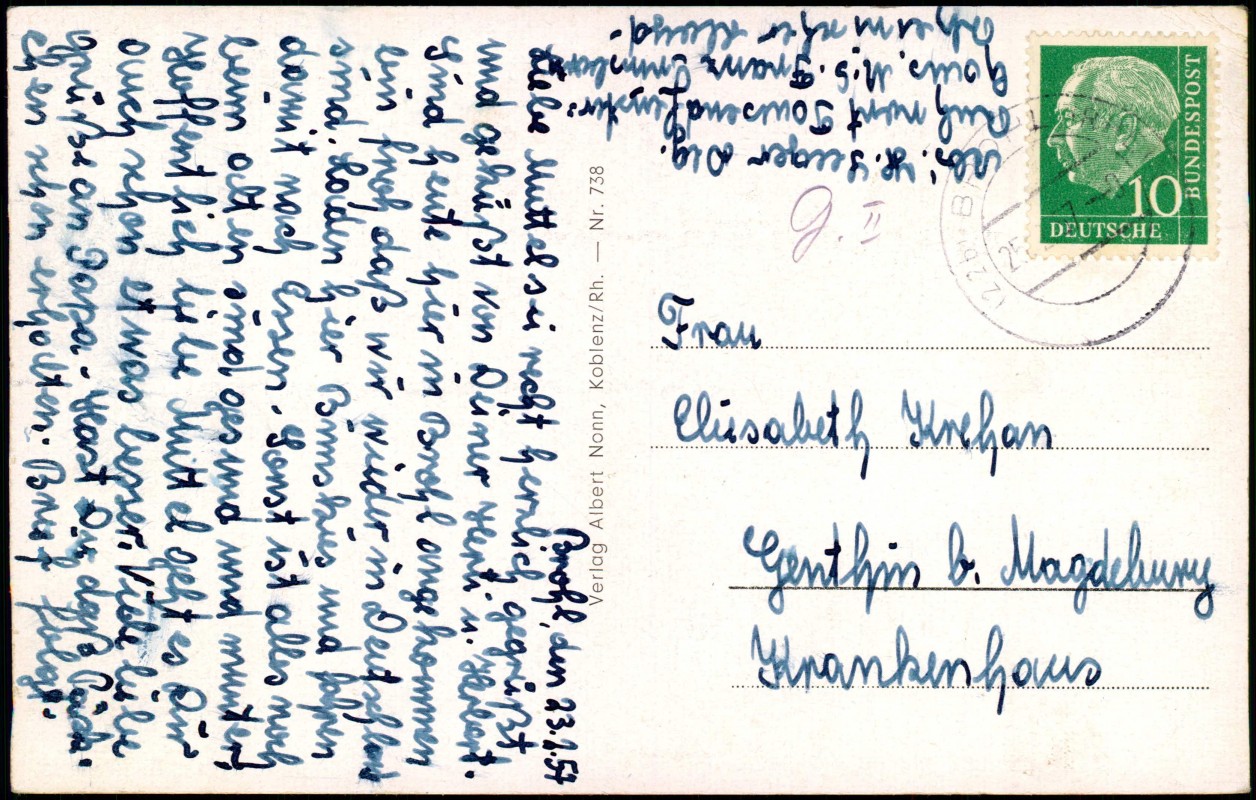 Brohl, den 23.7.57
Liebe Muttel sei recht herzlich gegrüßt
und geküßt von Deiner Herti u. Herbert.
Sind heute hier in Brohl angekommen
bin froh daß wir wieder in Deutschland
sind. Laden hier Bimskies und fahren
damit nach Essen. Sonst ist alles noch
beim alten sind gesund und munter,
Hoffentlich liebe Muttel geht es Dir
auch schon etwas besser. Viele liebe
Grüße an Papa. Hast Du daß Päck-
chen schon erhalten. Brief folgt.
Abs. H. Seeger Dtg.
Ruhrort
Haus. M.S. Franz
Verlag Albert Nonn, Koblenz/Rh. — Nr. 738
G. II
DEUTSCHE
BUNDESPOST
10
(22b) BROHL
25. 7.
Frau
Elisabeth Krehan
Genthin b. Magdeburg
Krankenhaus